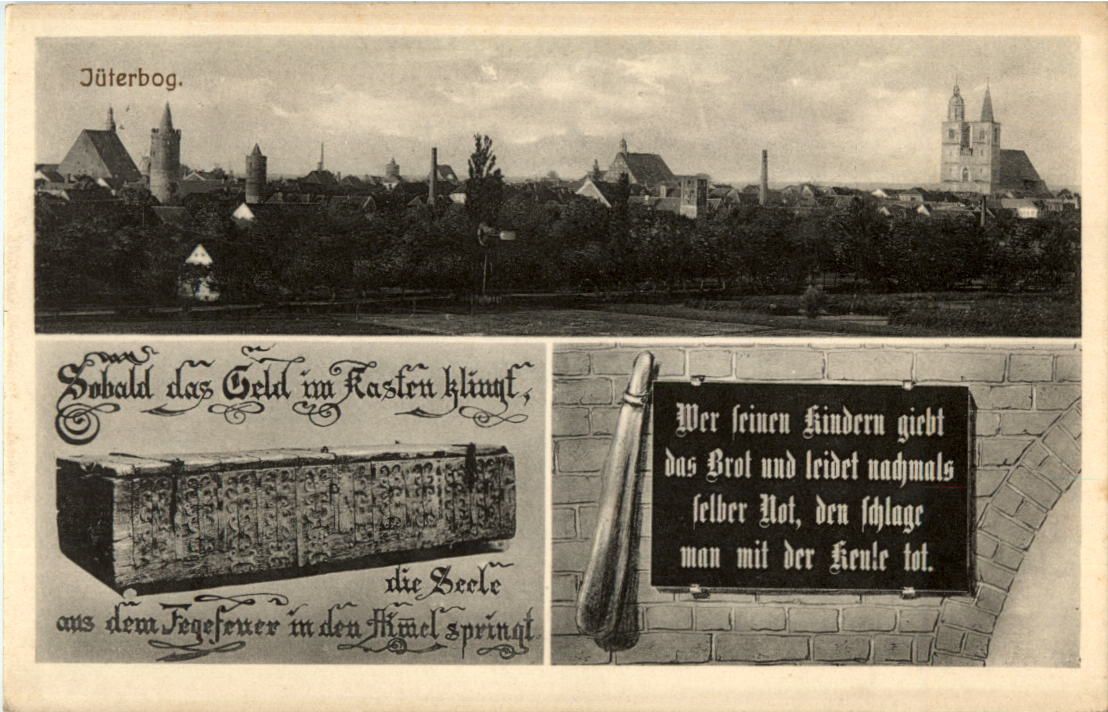 Jüterbog.
Sobald das Geld im Kasten klingt,
die Seele
aus dem Fegefeuer in den Himmel springt.
Wer seinen Kindern giebt
das Brot und leidet nachmals
selber Not, den schlage
man mit der Keule tot.